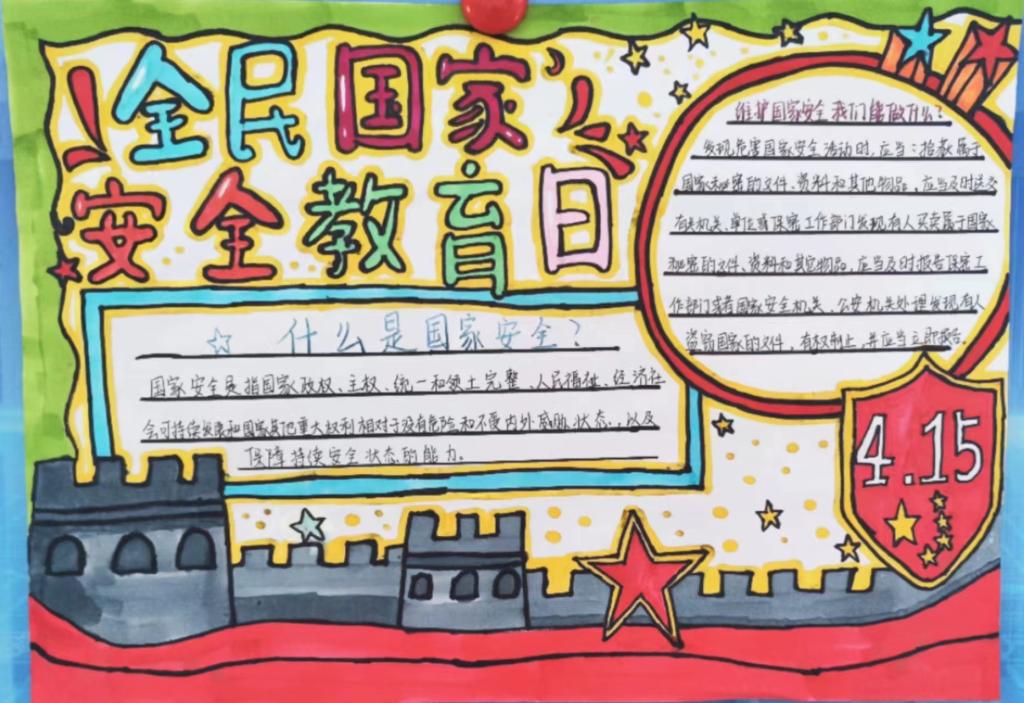 全民国家
安全教育日
什么是国家安全?
国家安全是指国家政权、主权、统一和领土完整、人民福祉、经济社
会可持续发展和国家其他重大权利相对于没有危险和不受内外威胁状态,以及
保障持续安全状态的能力。
维护国家安全我们能做什么?
发现危害国家安全活动时,应当:拾获属于
国家秘密的文件、资料和其他物品,应当及时送交
有关机关、单位或保密工作部门发现有人买卖属于国家
秘密的文件、资料和其它物品,应当及时报告保密工
作部门或者国家安全机关、公安机关处理发现有人
国家的文件,有权制止,并应当立即报告。
4.15